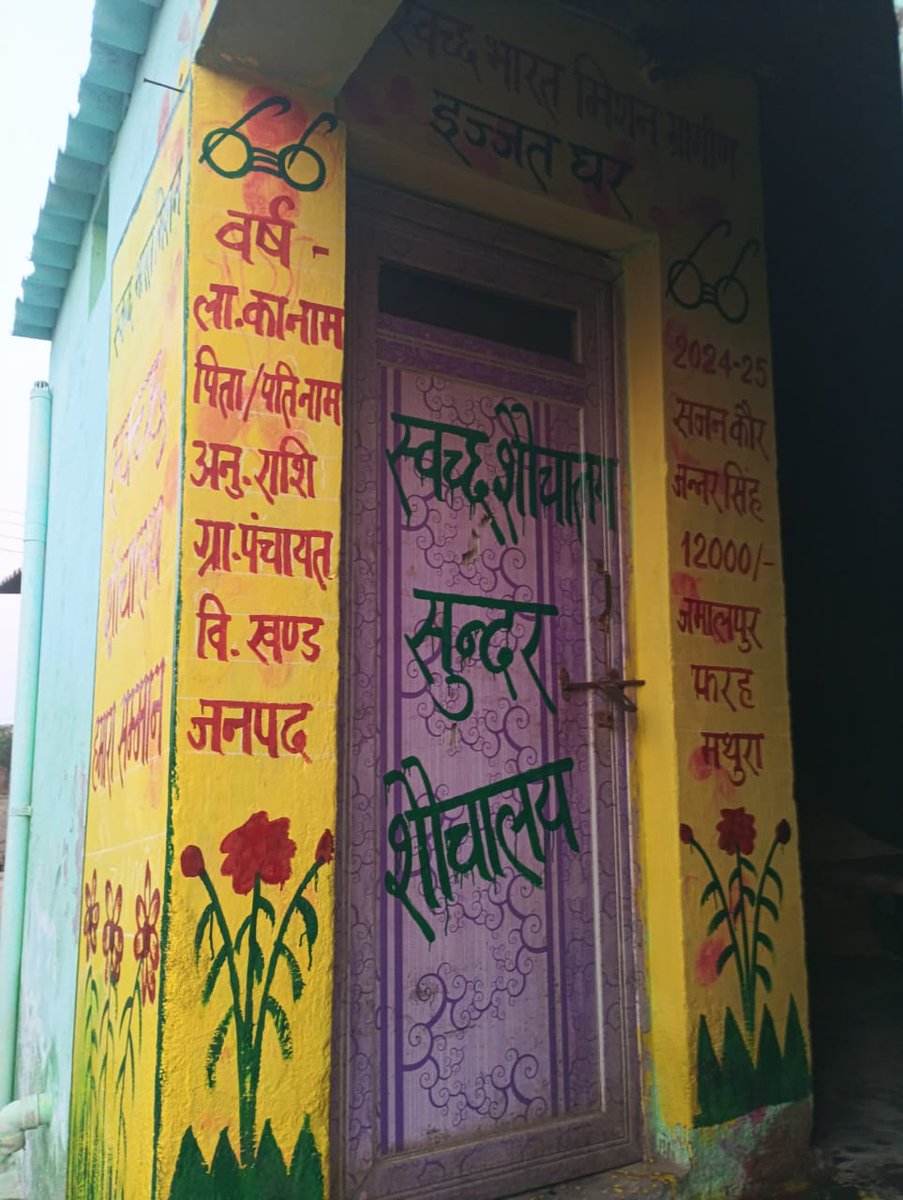 स्वच्छ भारत मिशन ग्रामीण
इज्जत घर
वर्ष - 2024-25
ला.का नाम सजन कौर
पिता/पति नाम जन्नर सिंह
अनु. राशि 12000/-
ग्रा.पंचायत जमालपुर
वि. खण्ड फरह
जनपद मथुरा
स्वच्छ शौचालय
सुन्दर
शौचालय
शौचालय
हमारा सम्मान